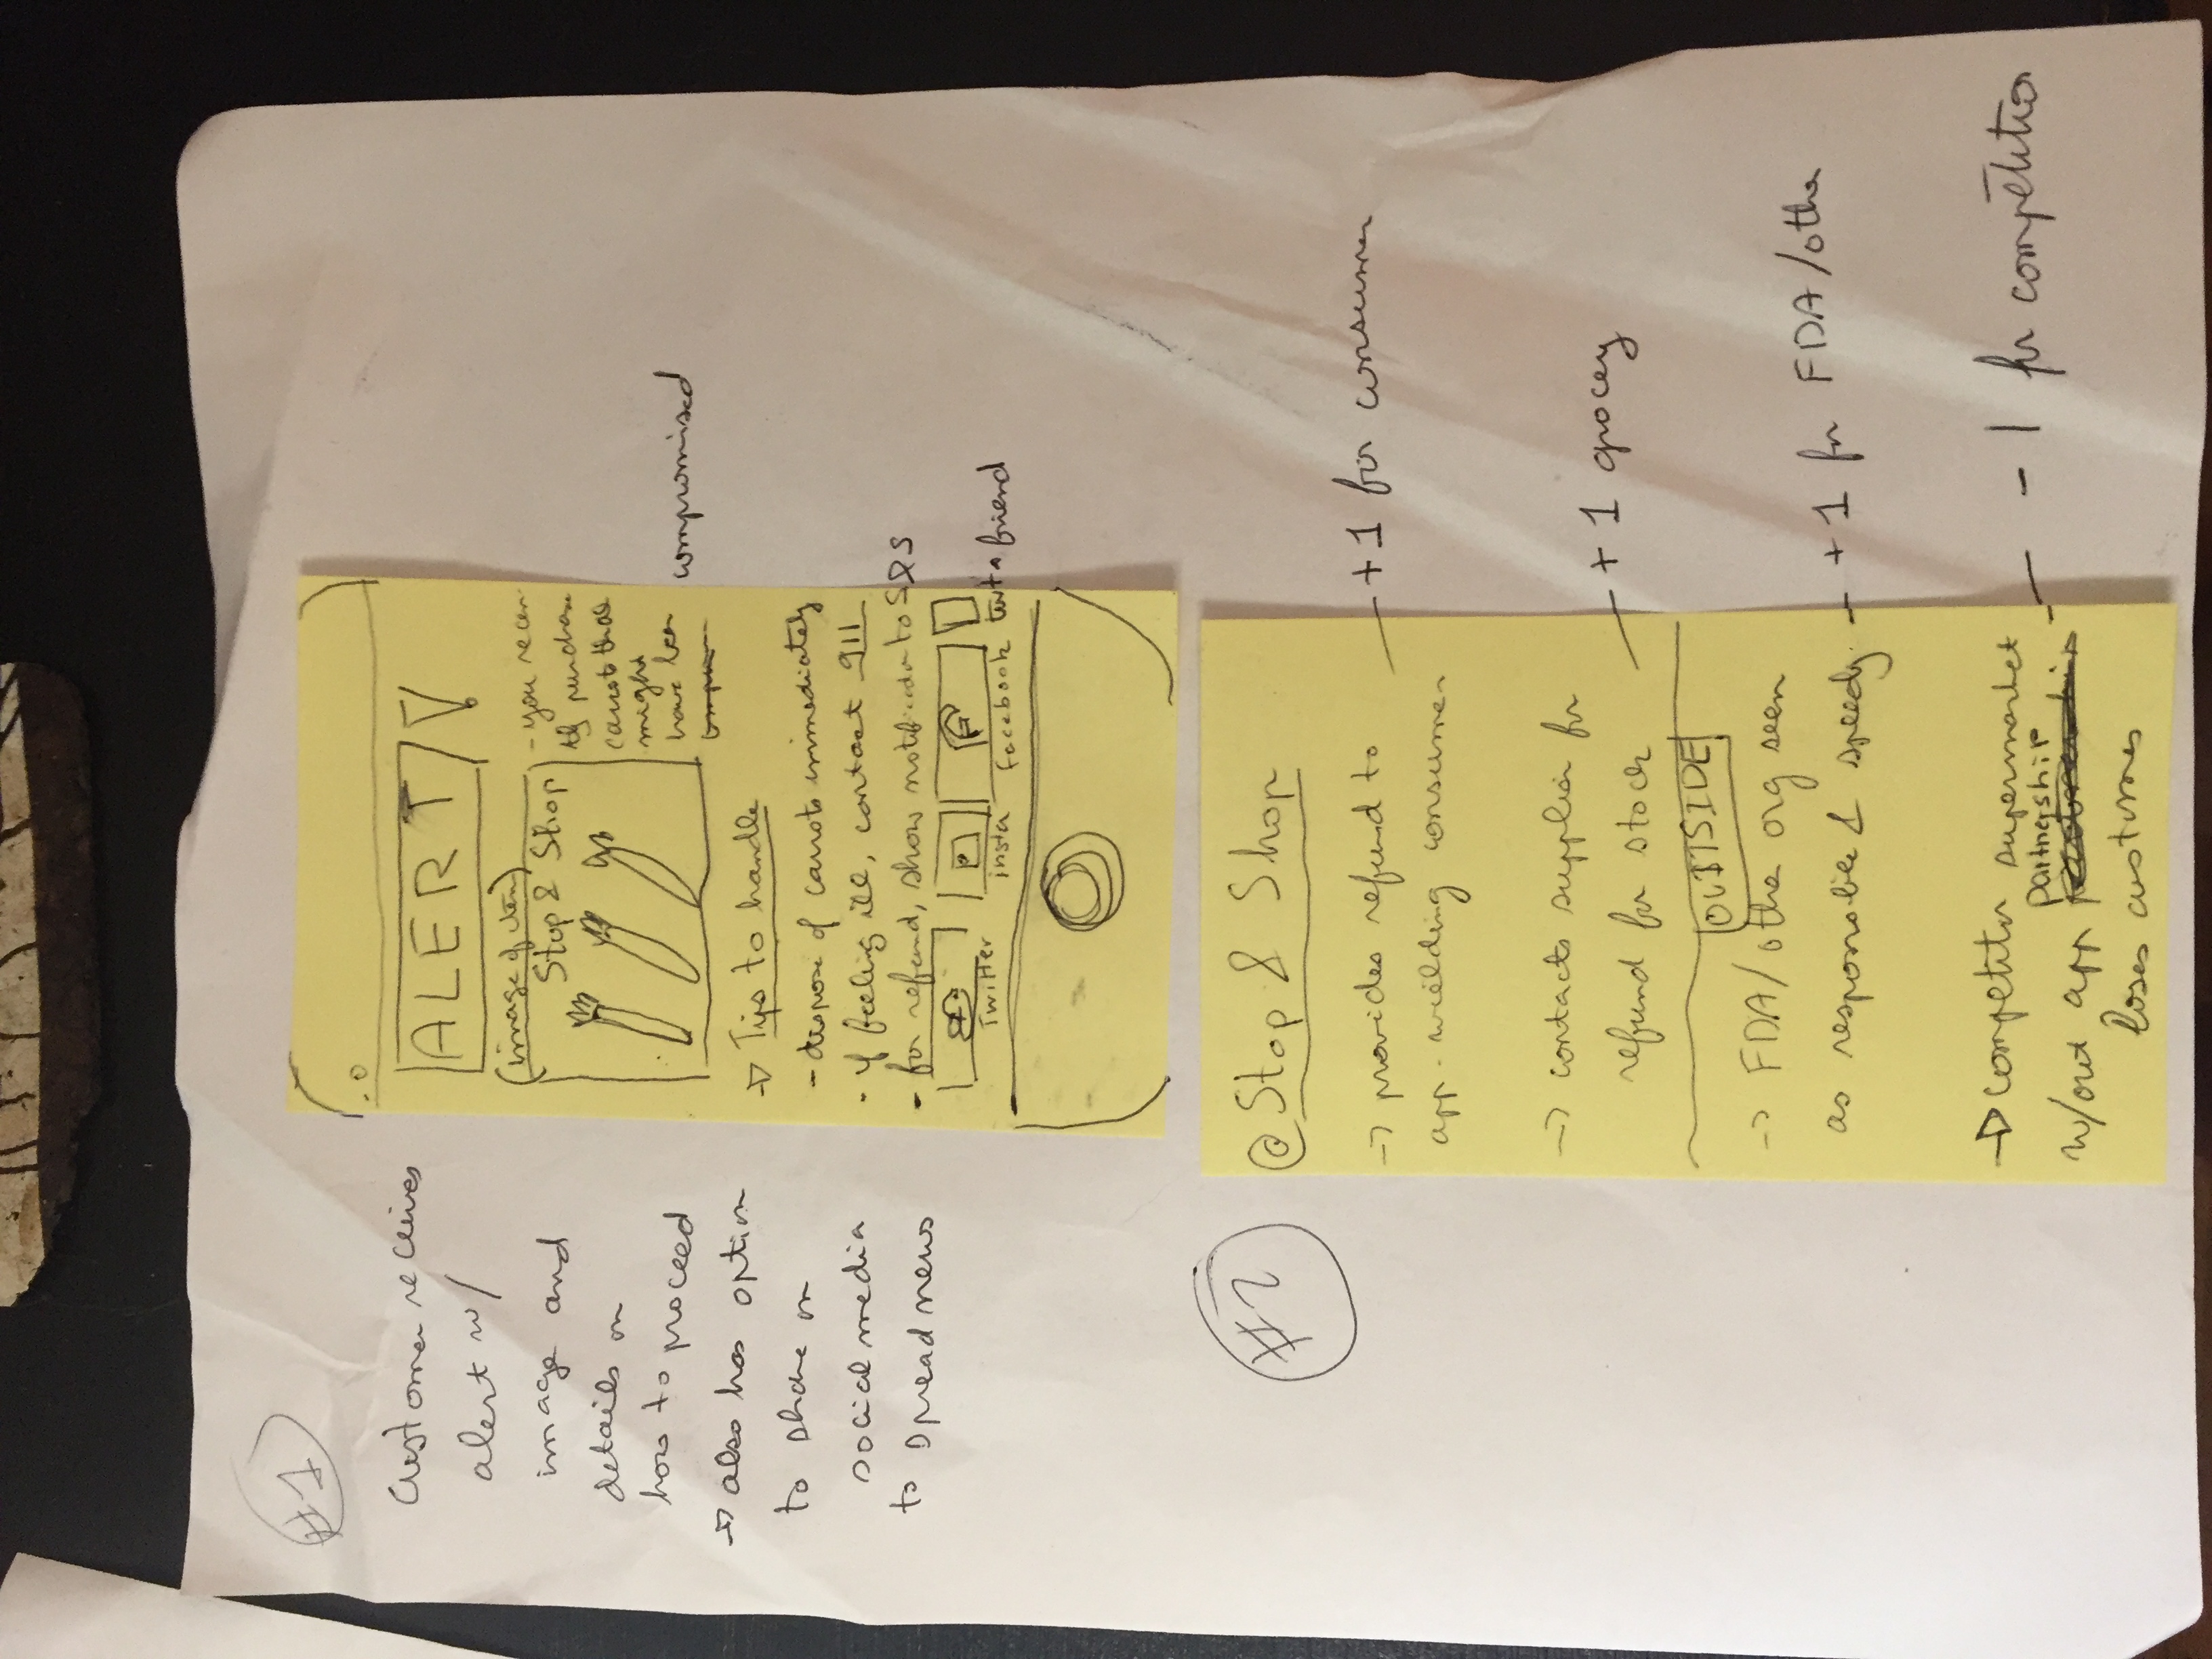 #1
Customer receives
alert w/
image and
details on
how to proceed
→ also has option
to share on
social media
to spread news
ALERT !
(image of item)
Stop & Shop
- you recen-
tly purchase
carrots that
might
have been
compromised
→ Tips to handle
- dispose of carrots immediately
- if feeling ill, contact 911
- for refund, show notification to S&S
Twitter
insta
facebook
text a friend
#2
@ Stop & Shop
→ provides refund to
app-wielding consumer
+1 for consumer
→ contacts supplier for
refund for stock
+1 grocey
OUTSIDE
→ FDA/other org seen
as responsible & speedy
+1 for FDA/other
→ competitor supermarket
partnership
w/out app
loses customers
-1 for competitior